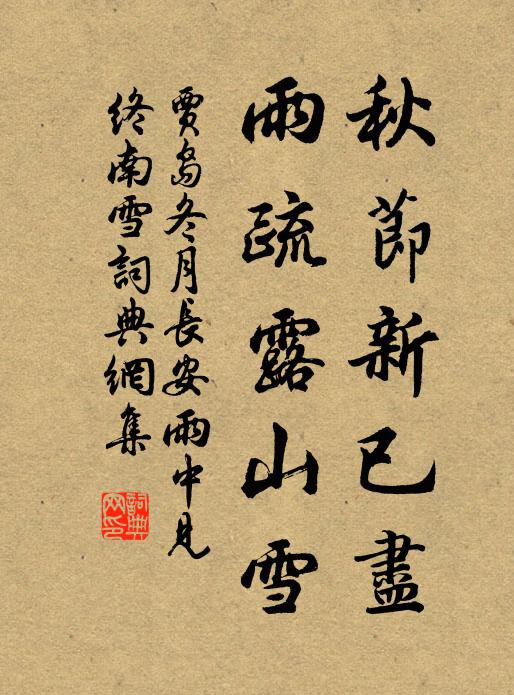 秋節新已盡
雨疏露山雪
賈島冬月長安雨中見
終南雪詞典網集
詞典網印